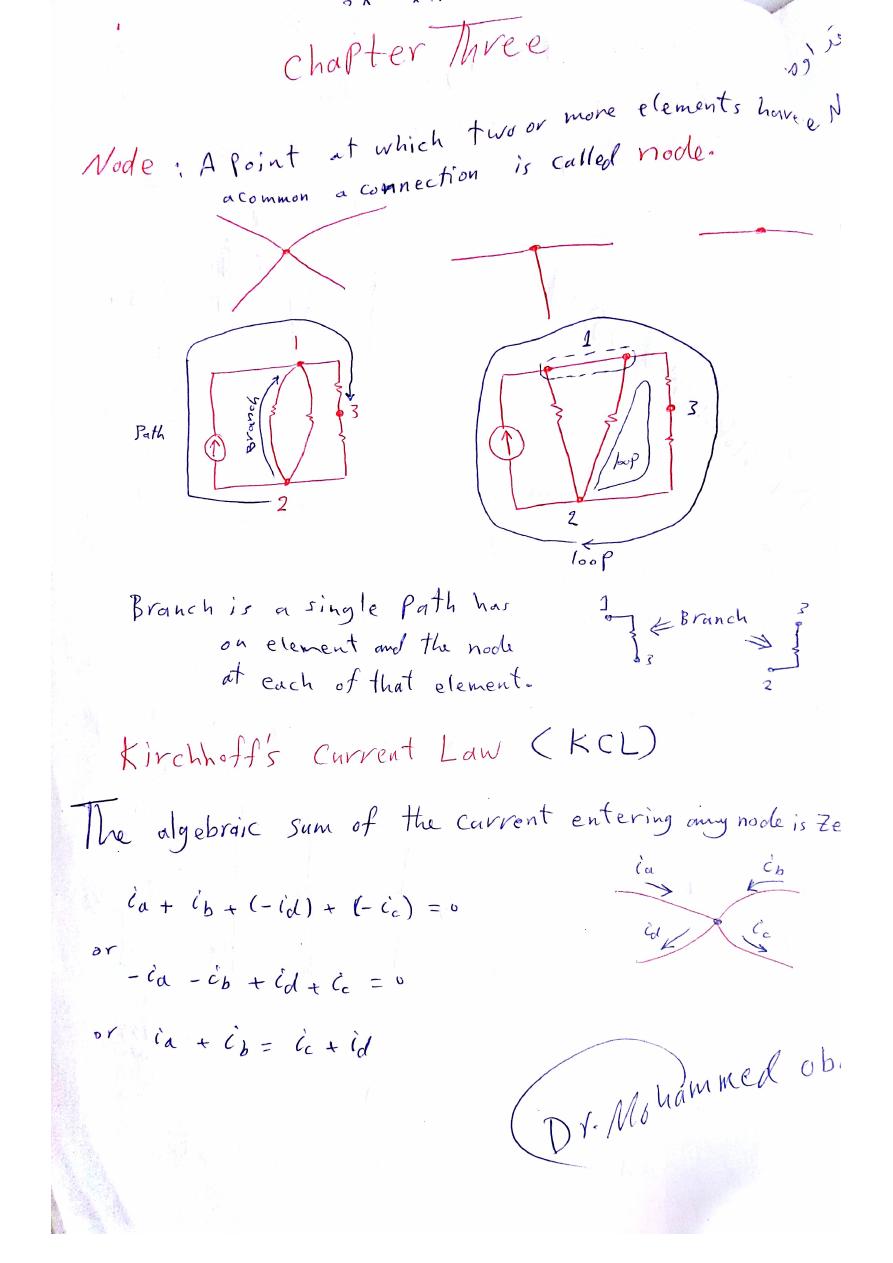 Chapter Three
Node : A point at which two or more elements have
a common a connection is called node.
1
Path
Branch
3
2
1
3
loop
2
loop
Branch is a single path has
on element and the node
at each of that element.
1
3
⇐ Branch ⇒
3
2
Kirchhoff's Current Law (KCL)
The algebraic sum of the current entering any node is Ze
ia + ib + (-id) + (-ic) = 0
or
-ia - ib + id + ic = 0
or ia + ib = ic + id
ia
ib
id
ic
Dr. Mohammed ob.